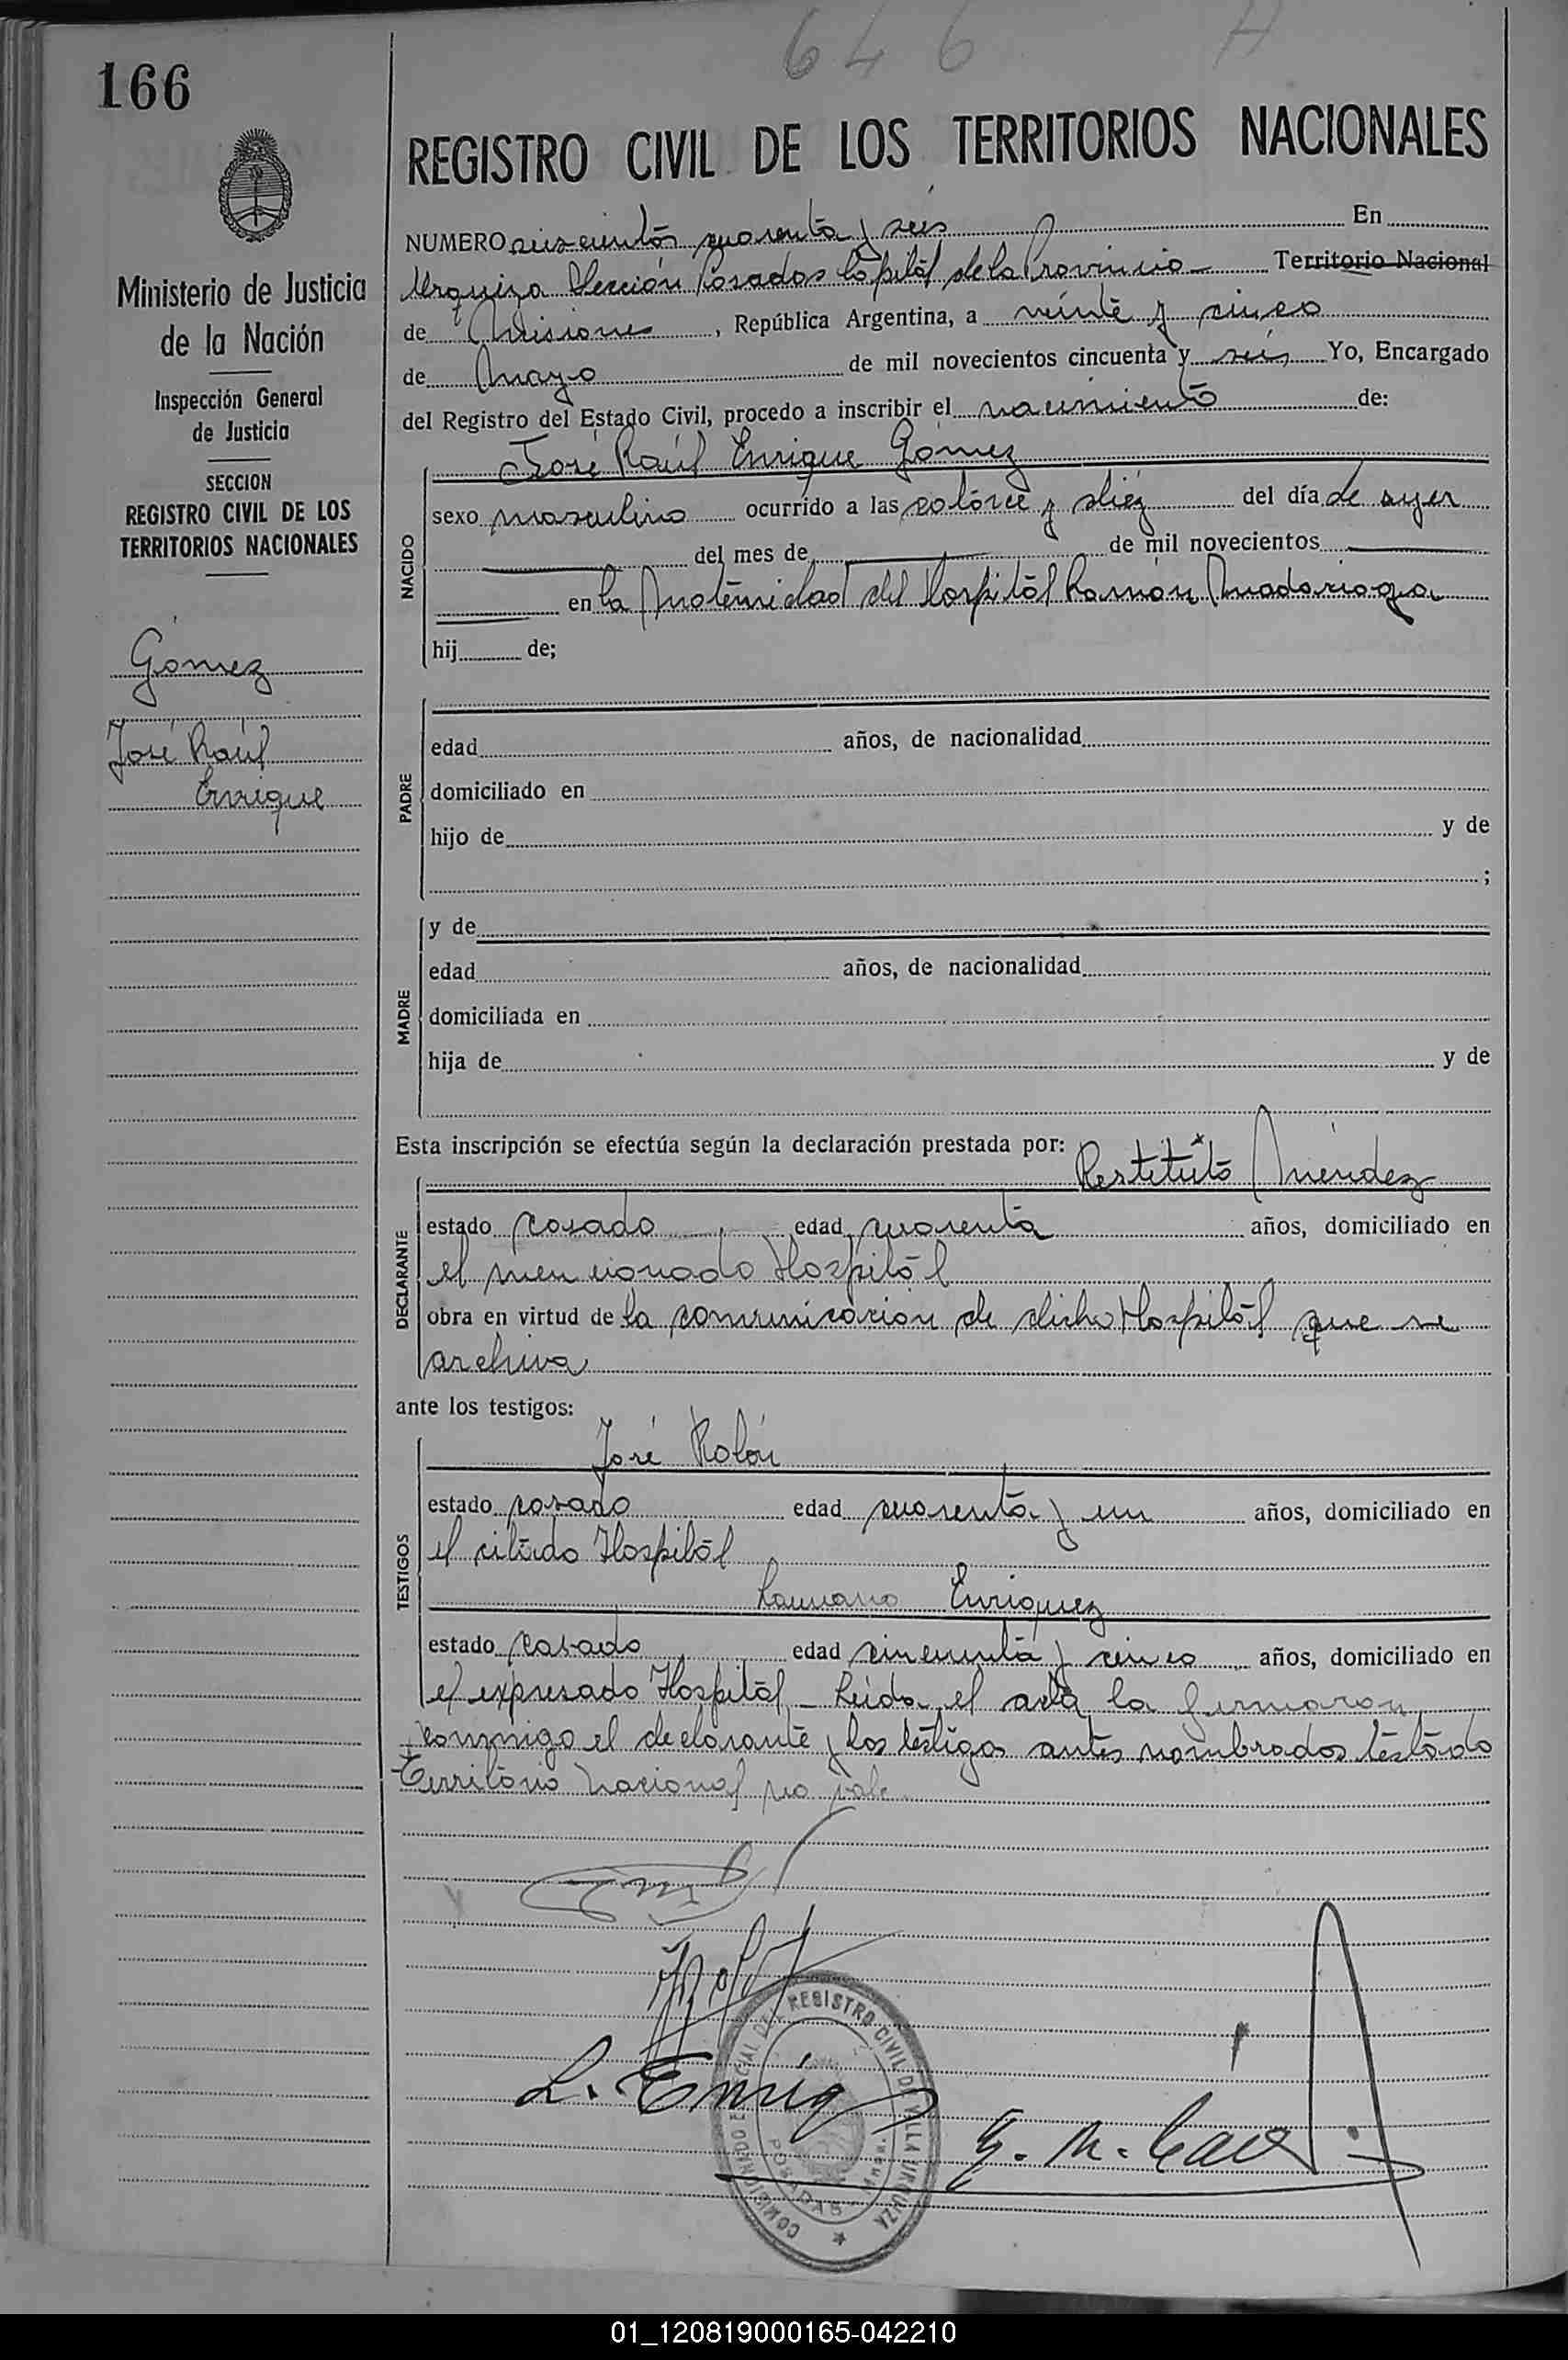 646 A
166
REGISTRO CIVIL DE LOS TERRITORIOS NACIONALES
Ministerio de Justicia
de la Nación
Inspección General
de Justicia
SECCION
REGISTRO CIVIL DE LOS
TERRITORIOS NACIONALES
Gómez
José Raúl
Enrique
NUMERO seiscientos cuarenta y seis En
Urquiza Sección Posadas Capital de la Provincia Territorio Nacional
de Misiones, República Argentina, a veinte y cinco
de Mayo de mil novecientos cincuenta y seis Yo, Encargado
del Registro del Estado Civil, procedo a inscribir el nacimiento de:
José Raúl Enrique Gómez
NACIDO
sexo masculino ocurrido a las catórce y diéz del día de ayer
del mes de de mil novecientos
en la Maternidad del Hospital Ramón Madariaga
hij de;
PADRE
edad años, de nacionalidad
domiciliado en
hijo de y de
;
MADRE
y de
edad años, de nacionalidad
domiciliada en
hija de y de
Esta inscripción se efectúa según la declaración prestada por: Restituto Méndez
DECLARANTE
estado casado edad cuarenta años, domiciliado en
el mencionado Hospital
obra en virtud de la comunicación de dicho Hospital que se
archiva
ante los testigos:
TESTIGOS
José Rolón
estado casado edad cuarenta y un años, domiciliado en
el citado Hospital
Enriquez
estado casado edad cincuenta y cinco años, domiciliado en
el expresado Hospital - Leida el acta la firmaron
conmigo el declarante y los testigos antes nombrados testado
Territorio Nacional no vale
L. Enriq
REGISTRO CIVIL DE VILLA URQUIZA
POSADAS
01_120819000165-042210